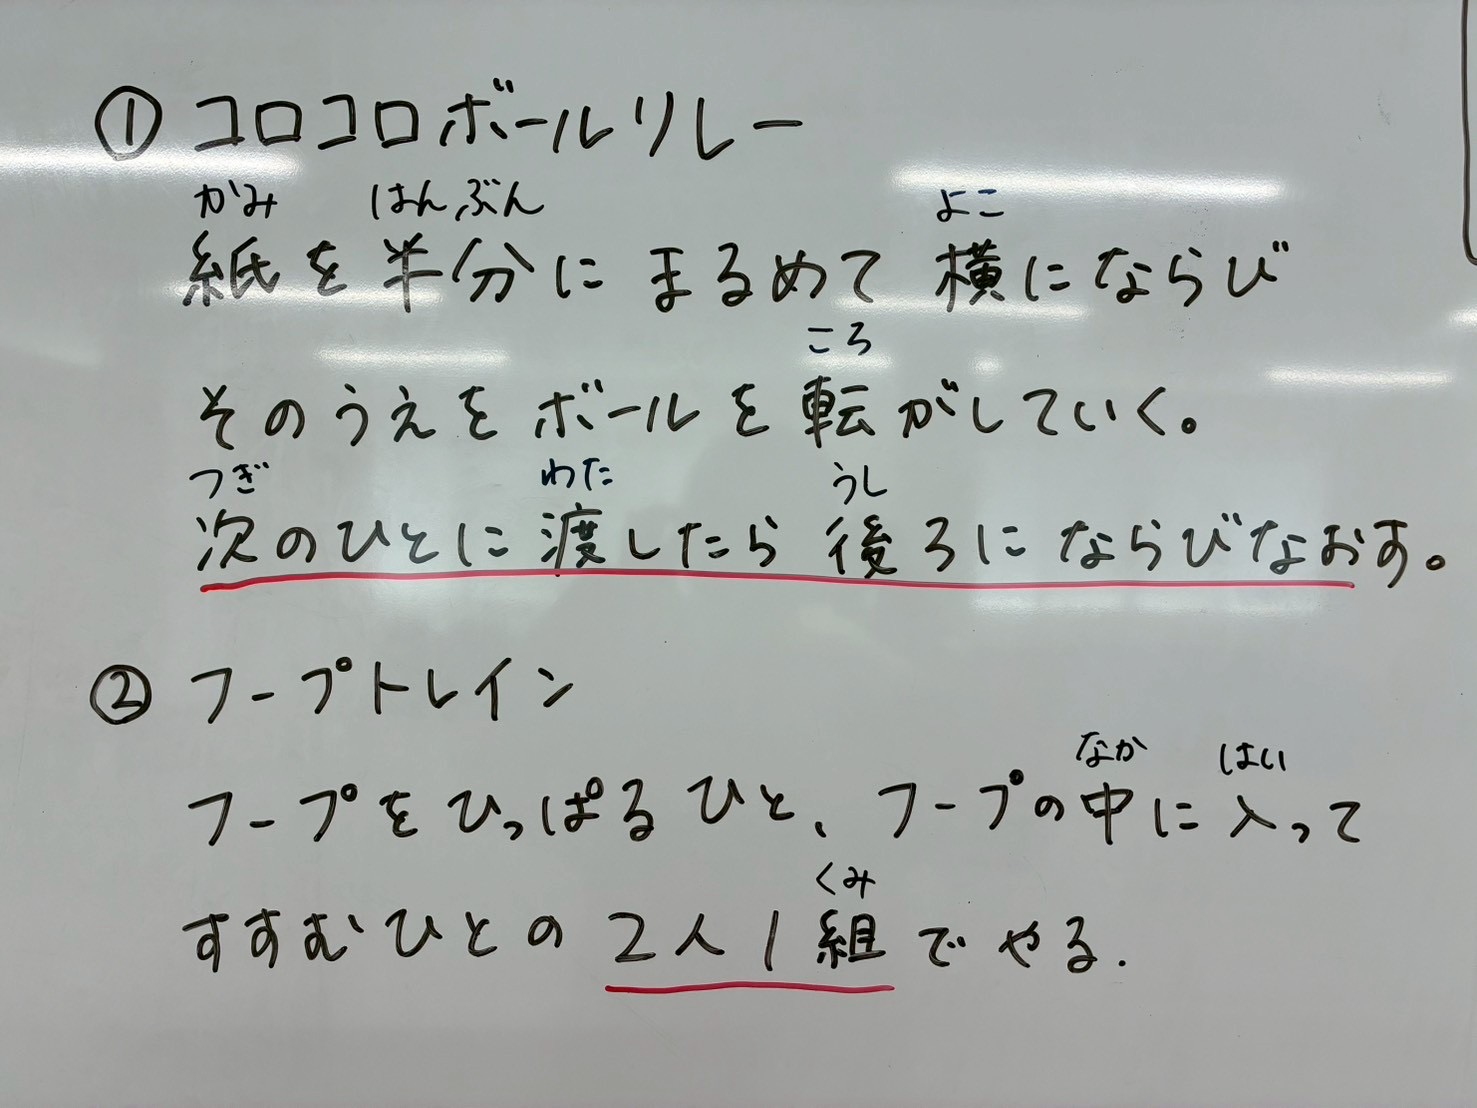 ① コロコロボールリレー
かみ はんぶん よこ
紙を半分にまるめて横にならび
ころ
そのうえをボールを転がしていく。
つぎ わた うし
次のひとに渡したら後ろにならびなおす。
② フープトレイン
なか はい
フープをひっぱるひと、フープの中に入って
くみ
すすむひとの2人1組でやる.